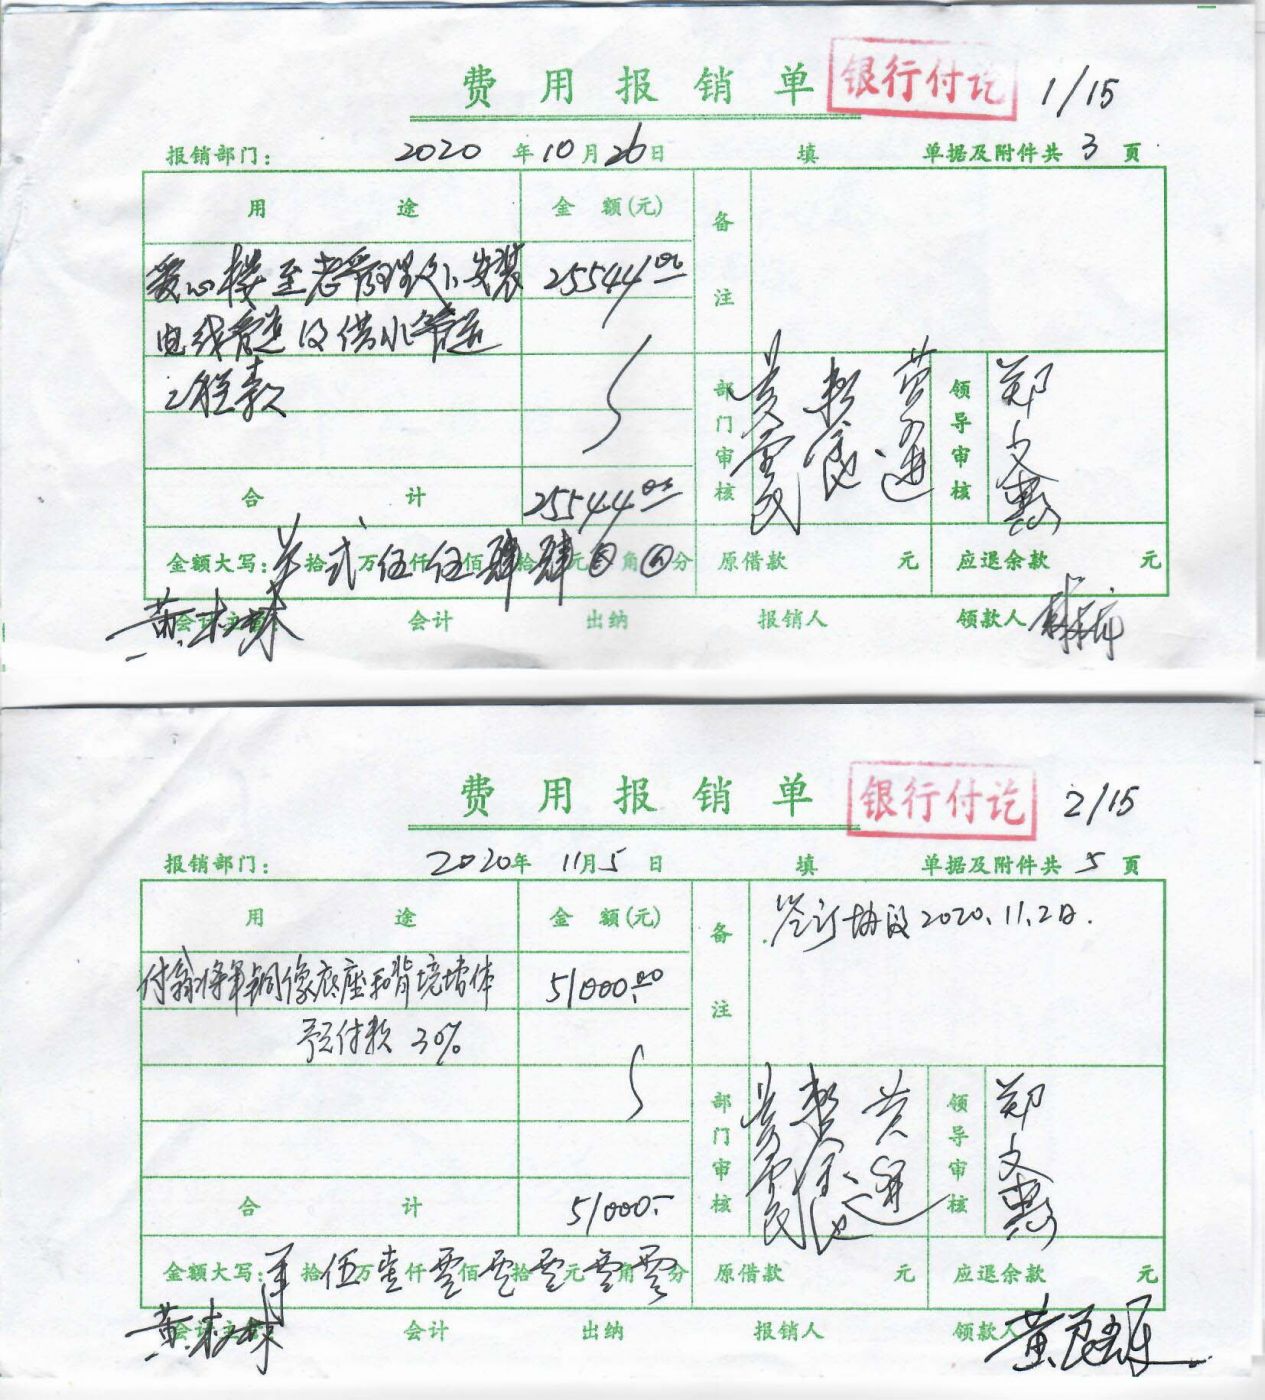 费用报销单 银行付讫 1/15
报销部门: 2020年10月26日 填 单据及附件共3页
用途 金额(元) 备注
爱心楼至老管理处安装 25544.00
电线管道及供水管道
工程款
部门审核 领导审核 郑文惠
合计 25544.00
金额大写: 拾弍万伍仟伍佰肆拾肆元0角0分 原借款 元 应退余款 元
会计主管 会计 出纳 报销人 领款人
费用报销单 银行付讫 2/15
报销部门: 2020年11月5日 填 单据及附件共5页
用途 金额(元) 备注 签订协议2020.11.2日.
付翁将军铜像底座和背境墙体 51000.00
预付款30%
部门审核 领导审核 郑文惠
合计 51000.-
金额大写: 拾伍万壹仟零佰零拾零元零角零分 原借款 元 应退余款 元
会计主管 会计 出纳 报销人 领款人